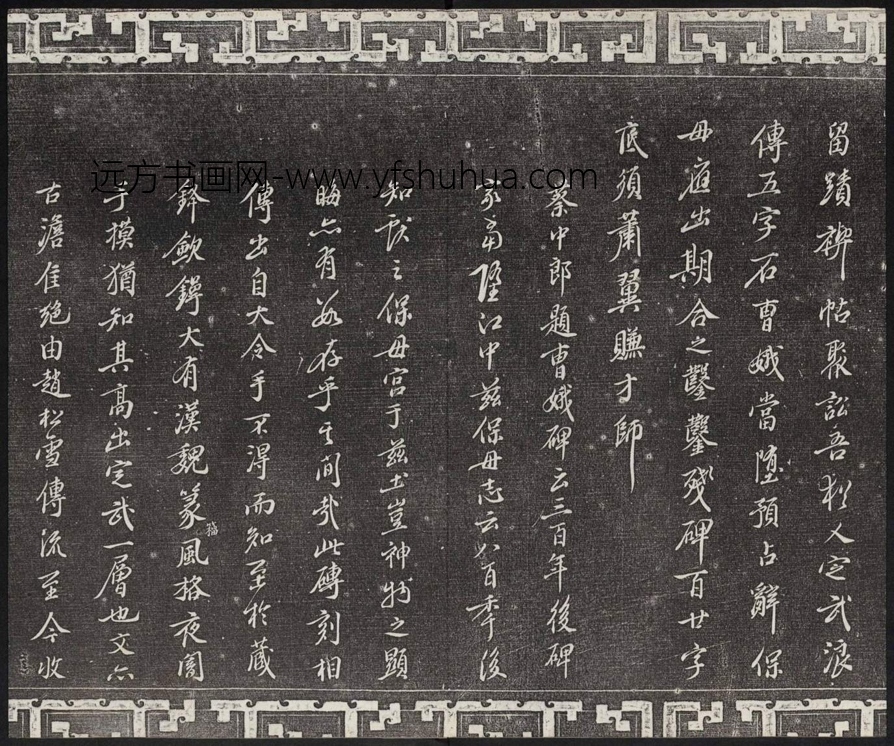 留蹟禊帖聚訟吾犹人定武浪
傳五字石曹娥當墮預占辭保
母應出期合之鑿鑿殘碑百廿字
底須蕭翼賺才師
蔡中郎題曹娥碑云三百年後碑
冢當墮江中茲保母志云八百季後
知獻之保母宮于茲土豈神物之顯
晦亦有數存乎其間哉此磚刻相
傳出自大令手不得而知至於蔵
鋒歛鍔大有漢魏篆籀風格夜闇
手摸猶知其高出定武一層也文亦
古澹佳絕由趙松雪傳流至今收
远方书画网-www.yfshuhua.com